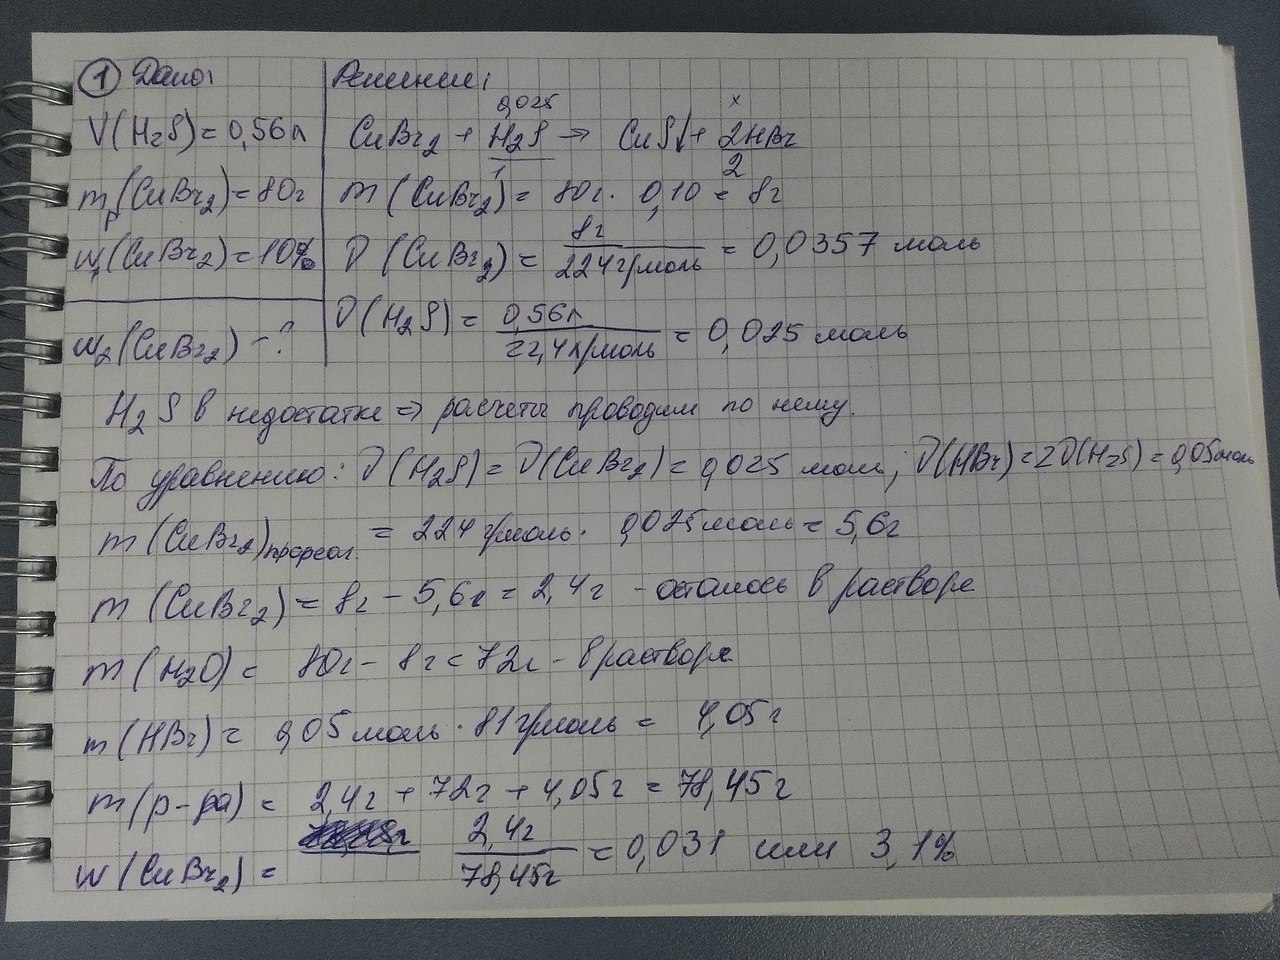 ① Дано:
V(H2S) = 0,56л
mр(CuBr2) = 80г
w1(CuBr2) = 10%
w2(CuBr2) - ?
Решение:
0,025 x
CuBr2 + H2S → CuS↓ + 2HBr
1 2
m(CuBr2) = 80г · 0,10 = 8г
ν(CuBr2) = 8г / 224г/моль = 0,0357 моль
ν(H2S) = 0,56л / 22,4л/моль = 0,025 моль
H2S в недостатке ⇒ расчеты проводим по нему.
По уравнению: ν(H2S) = ν(CuBr2) = 0,025 моль; ν(HBr) = 2ν(H2S) = 0,05моль
m(CuBr2)прореаг. = 224 г/моль · 0,025 моль = 5,6г
m(CuBr2) = 8г - 5,6г = 2,4г - осталось в растворе
m(H2O) = 80г - 8г = 72г - в растворе
m(HBr) = 0,05 моль · 81г/моль = 4,05г
m(р-ра) = 2,4г + 72г + 4,05г = 78,45г
w(CuBr2) = 2,4г / 78,45г = 0,031 или 3,1%